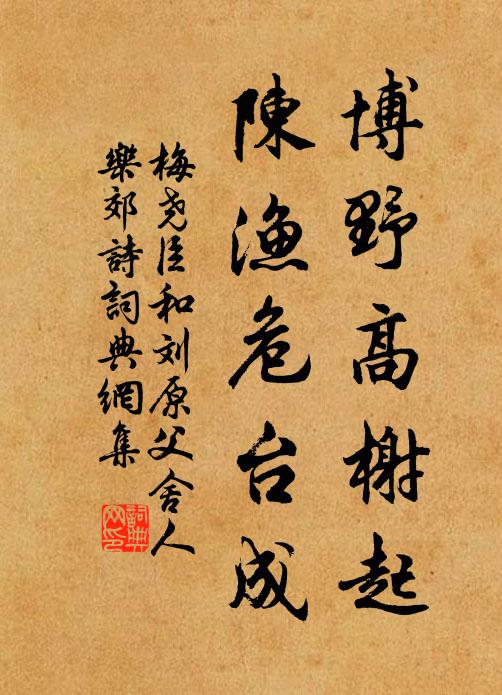 博野高榭起
陳漁危台成
梅尧臣和刘原父舍人
樂郊詩詞典網集
詞典网印